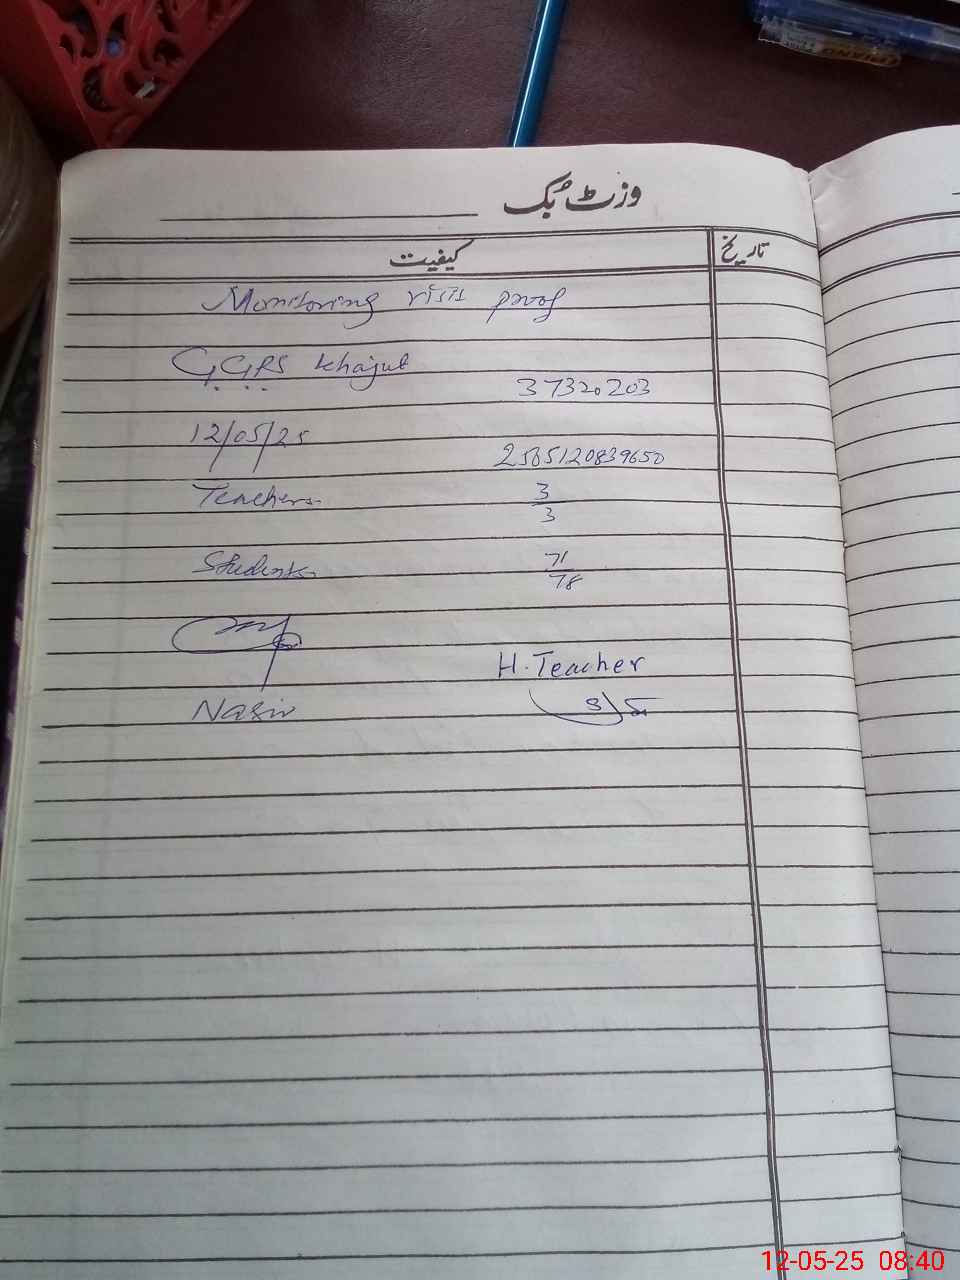 وزٹ بُک
کیفیت
تاریخ
Monitoring visits proof
G.G.P.S Khajut
37320203
12/05/25
2505120839650
Teachers
3/3
Students
71/78
H. Teacher
Nasir
12-05-25 08:40